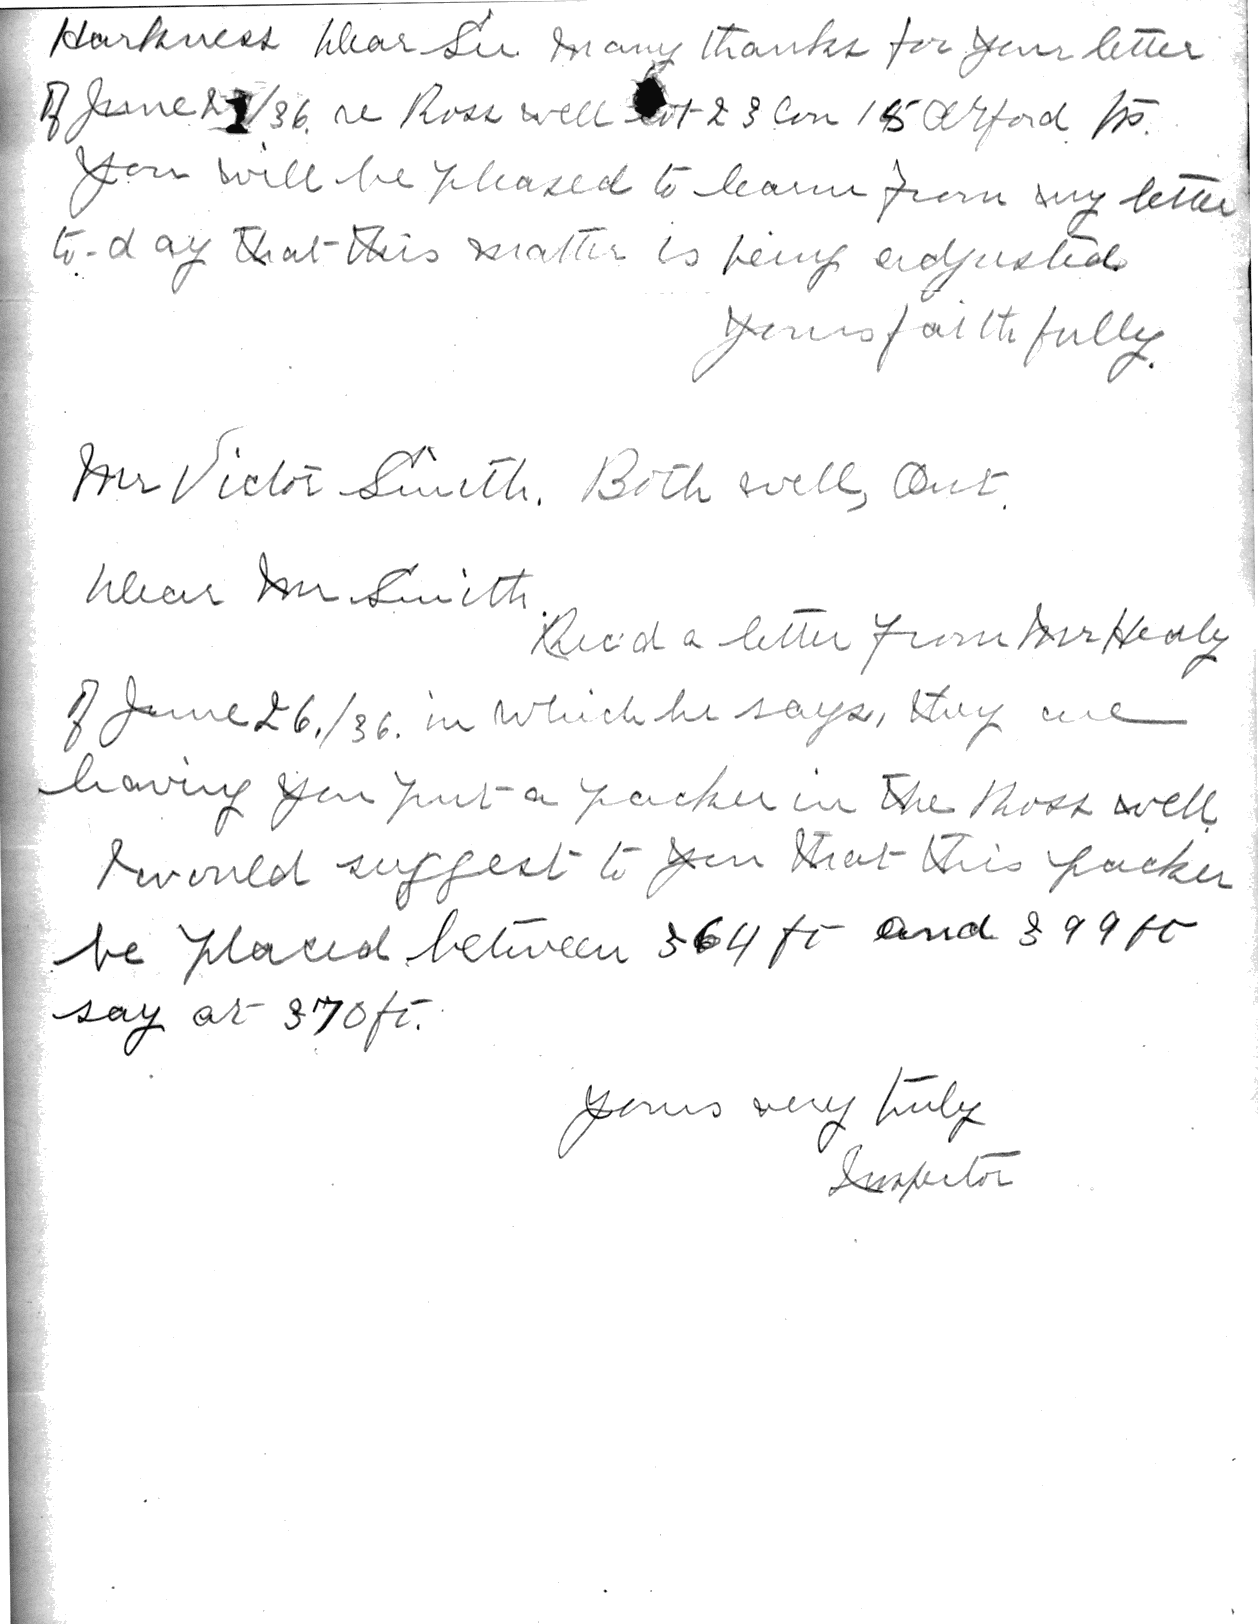 Harkness Dear Sir Many thanks for your letter
of June 27/36. re Ross well Lot 23 Con 15 Orford Tp.
You will be pleased to learn from my letter
to-day that this matter is being adjusted
Yours faithfully.
Mr Victor Smith. Bothwell, Ont.
Dear Mr Smith.
Rec'd a letter from Mr Healy
of June 26./36. in which he says, they are
having you put a packer in the Ross well.
I would suggest to you that this packer
be placed between 364 ft and 399 ft
say at 370 ft.
Yours very truly
Inspector